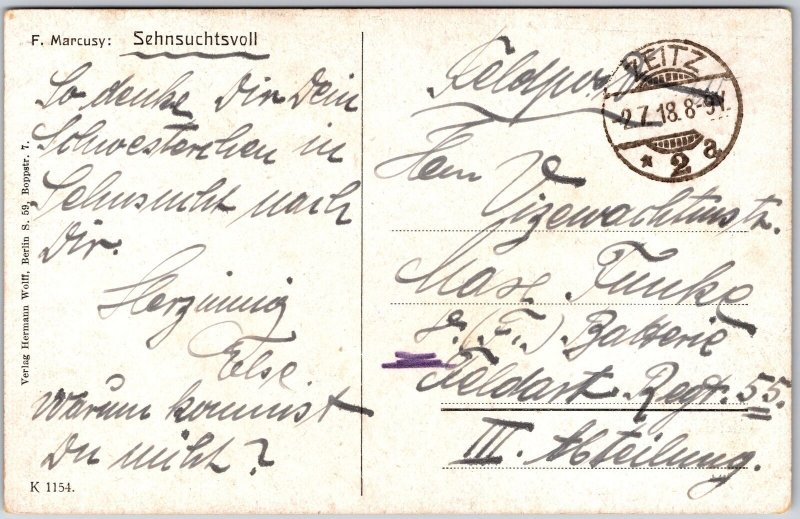 F. Marcusy: Sehnsuchtsvoll
So denke Dir Dein
Schwesterchen in
Sehnsucht nach
Dir.
Herzinnig
Else
Warum kommst
Du nicht?
K 1154.
Verlag Hermann Wolff, Berlin S. 59, Boppstr. 7.
Feldpost
ZEITZ
2.7.18.8-9V.
* 2 a
Herrn
Vizewachtmstr.
Max Funke
(F.) Batterie
Feldart. Regt. 55.
III. Abteilung.